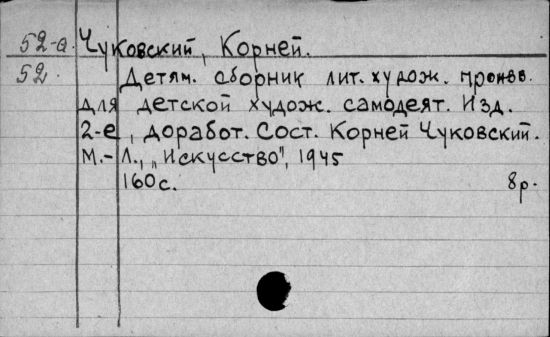 52-а. Чуковский, Корней.
52. Детям. сборник лит. худож. произв.
для детской худож. самодеят. Изд.
2-е, доработ. Сост. Корней Чуковский.
М.-Л., "Искусство", 1945
160с. 8р.